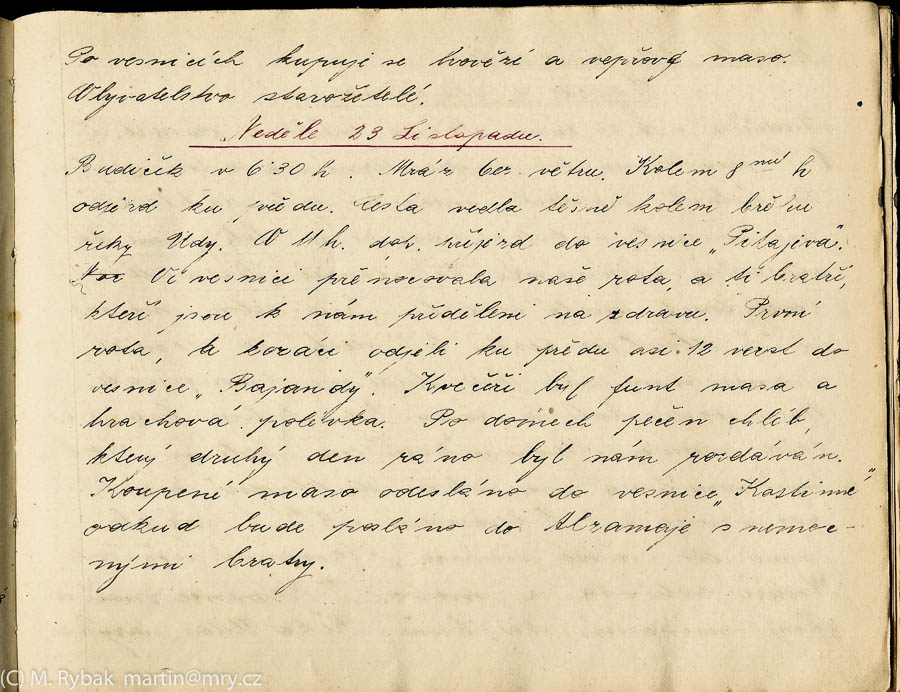 Po vesnicích kupuje se hovězí a vepřové maso.
Obyvatelstvo starožitelé.
Neděle 23 Listopadu.
Budíček v 6·30 h. Mráz bez větru. Kolem 8mé h
odjezd ku předu. Cesta vedla těsně kolem břehu
řeky Udy. V 11 h. dop. příjezd do vesnice „Pitajeva".
V vesnici přenocovala naše rota, a ti bratři,
kteří jsou k nám přiděleni na zdravu. První
rota, a kozáci odjeli ku předu asi 12 verst do
vesnice „Bajandy". K večeři byl funt masa a
hrachová polévka. Po domech pečen chléb,
který druhý den ráno byl nám rozdáván.
Koupené maso odesláno do vesnice „Kostinné"
odkud bude posláno do Abramaje s nemoc-
nými bratry.
(C) M. Rybak martin@mry.cz